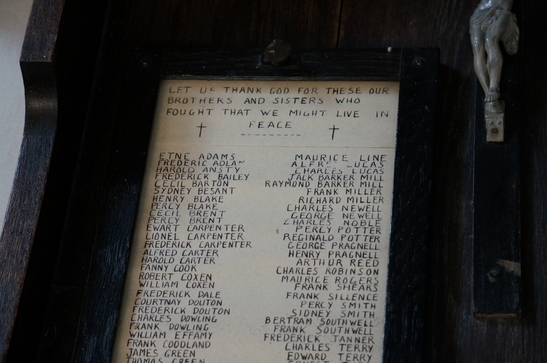 LET US THANK GOD FOR THESE OUR
BROTHERS AND SISTERS WHO
FOUGHT THAT WE MIGHT LIVE IN
PEACE
ETNE ADAMS
FREDERIC
HAROLD ANSTY
FREDERICK BAILEY
CECIL BARTON
SYDNEY BESANT
HENRY BLAKE
PERCY BLAKE
CECIL BRENT
PERCY BRENT
EWART CARPENTER
LIONEL CARPENTER
FREDERICK CARPENTER
ALFRED CARTER
HAROLD CARTER
FANNY COOK
ROBERT COXEN
WILLIAM COXEN
FREDERICK DALE
COURTNAY DOUTON
FREDERICK DOUTON
CHARLES DOWLING
FRANK DOWLING
WILLIAM EFFAMY
FRANK GOODLAND
JAMES GREEN
THOMAS GREEN
MAURICE LINE
LUCAS
CHARLES LUCAS
JACK BARKER MILL
RAYMOND BARKER MILL
FRANK MILLER
RICHARD MILLER
CHARLES NEWELL
GEORGE NEWELL
CHARLES NOBLE
PERCY POTTER
REGINALD POTTER
GEORGE PRAGNELL
HENRY PRAGNELL
ARTHUR REED
CHARLES ROBINSON
MAURICE ROGERS
FRANK SHEARS
FRANK SILLENCE
PERCY SMITH
SIDNEY SMITH
BERTRAM SOUTHWELL
FRANK SOUTHWELL
FREDERICK TANNER
CHARLES TERRY
EDWARD TERRY